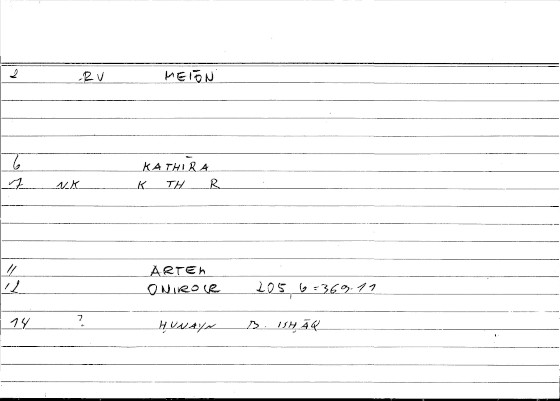 2 .RV MEIŌN
6 KATHĪRA
7 NK K TH R
11 ARTEM
12 ONIROCR 205,6=369.11
14 ? ḤUNAYN B. ISḤĀQ